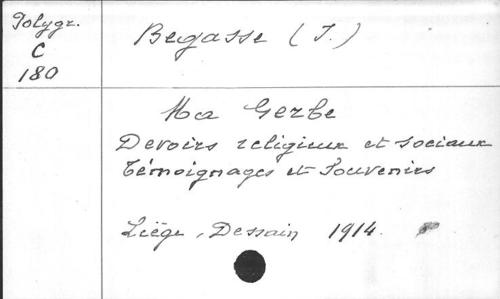 Polygr.
C
180
Begasse (J.)
Ma Gerbe
Devoirs religieux et sociaux
Témoignages et Souvenirs
Liège, Dessain 1914.